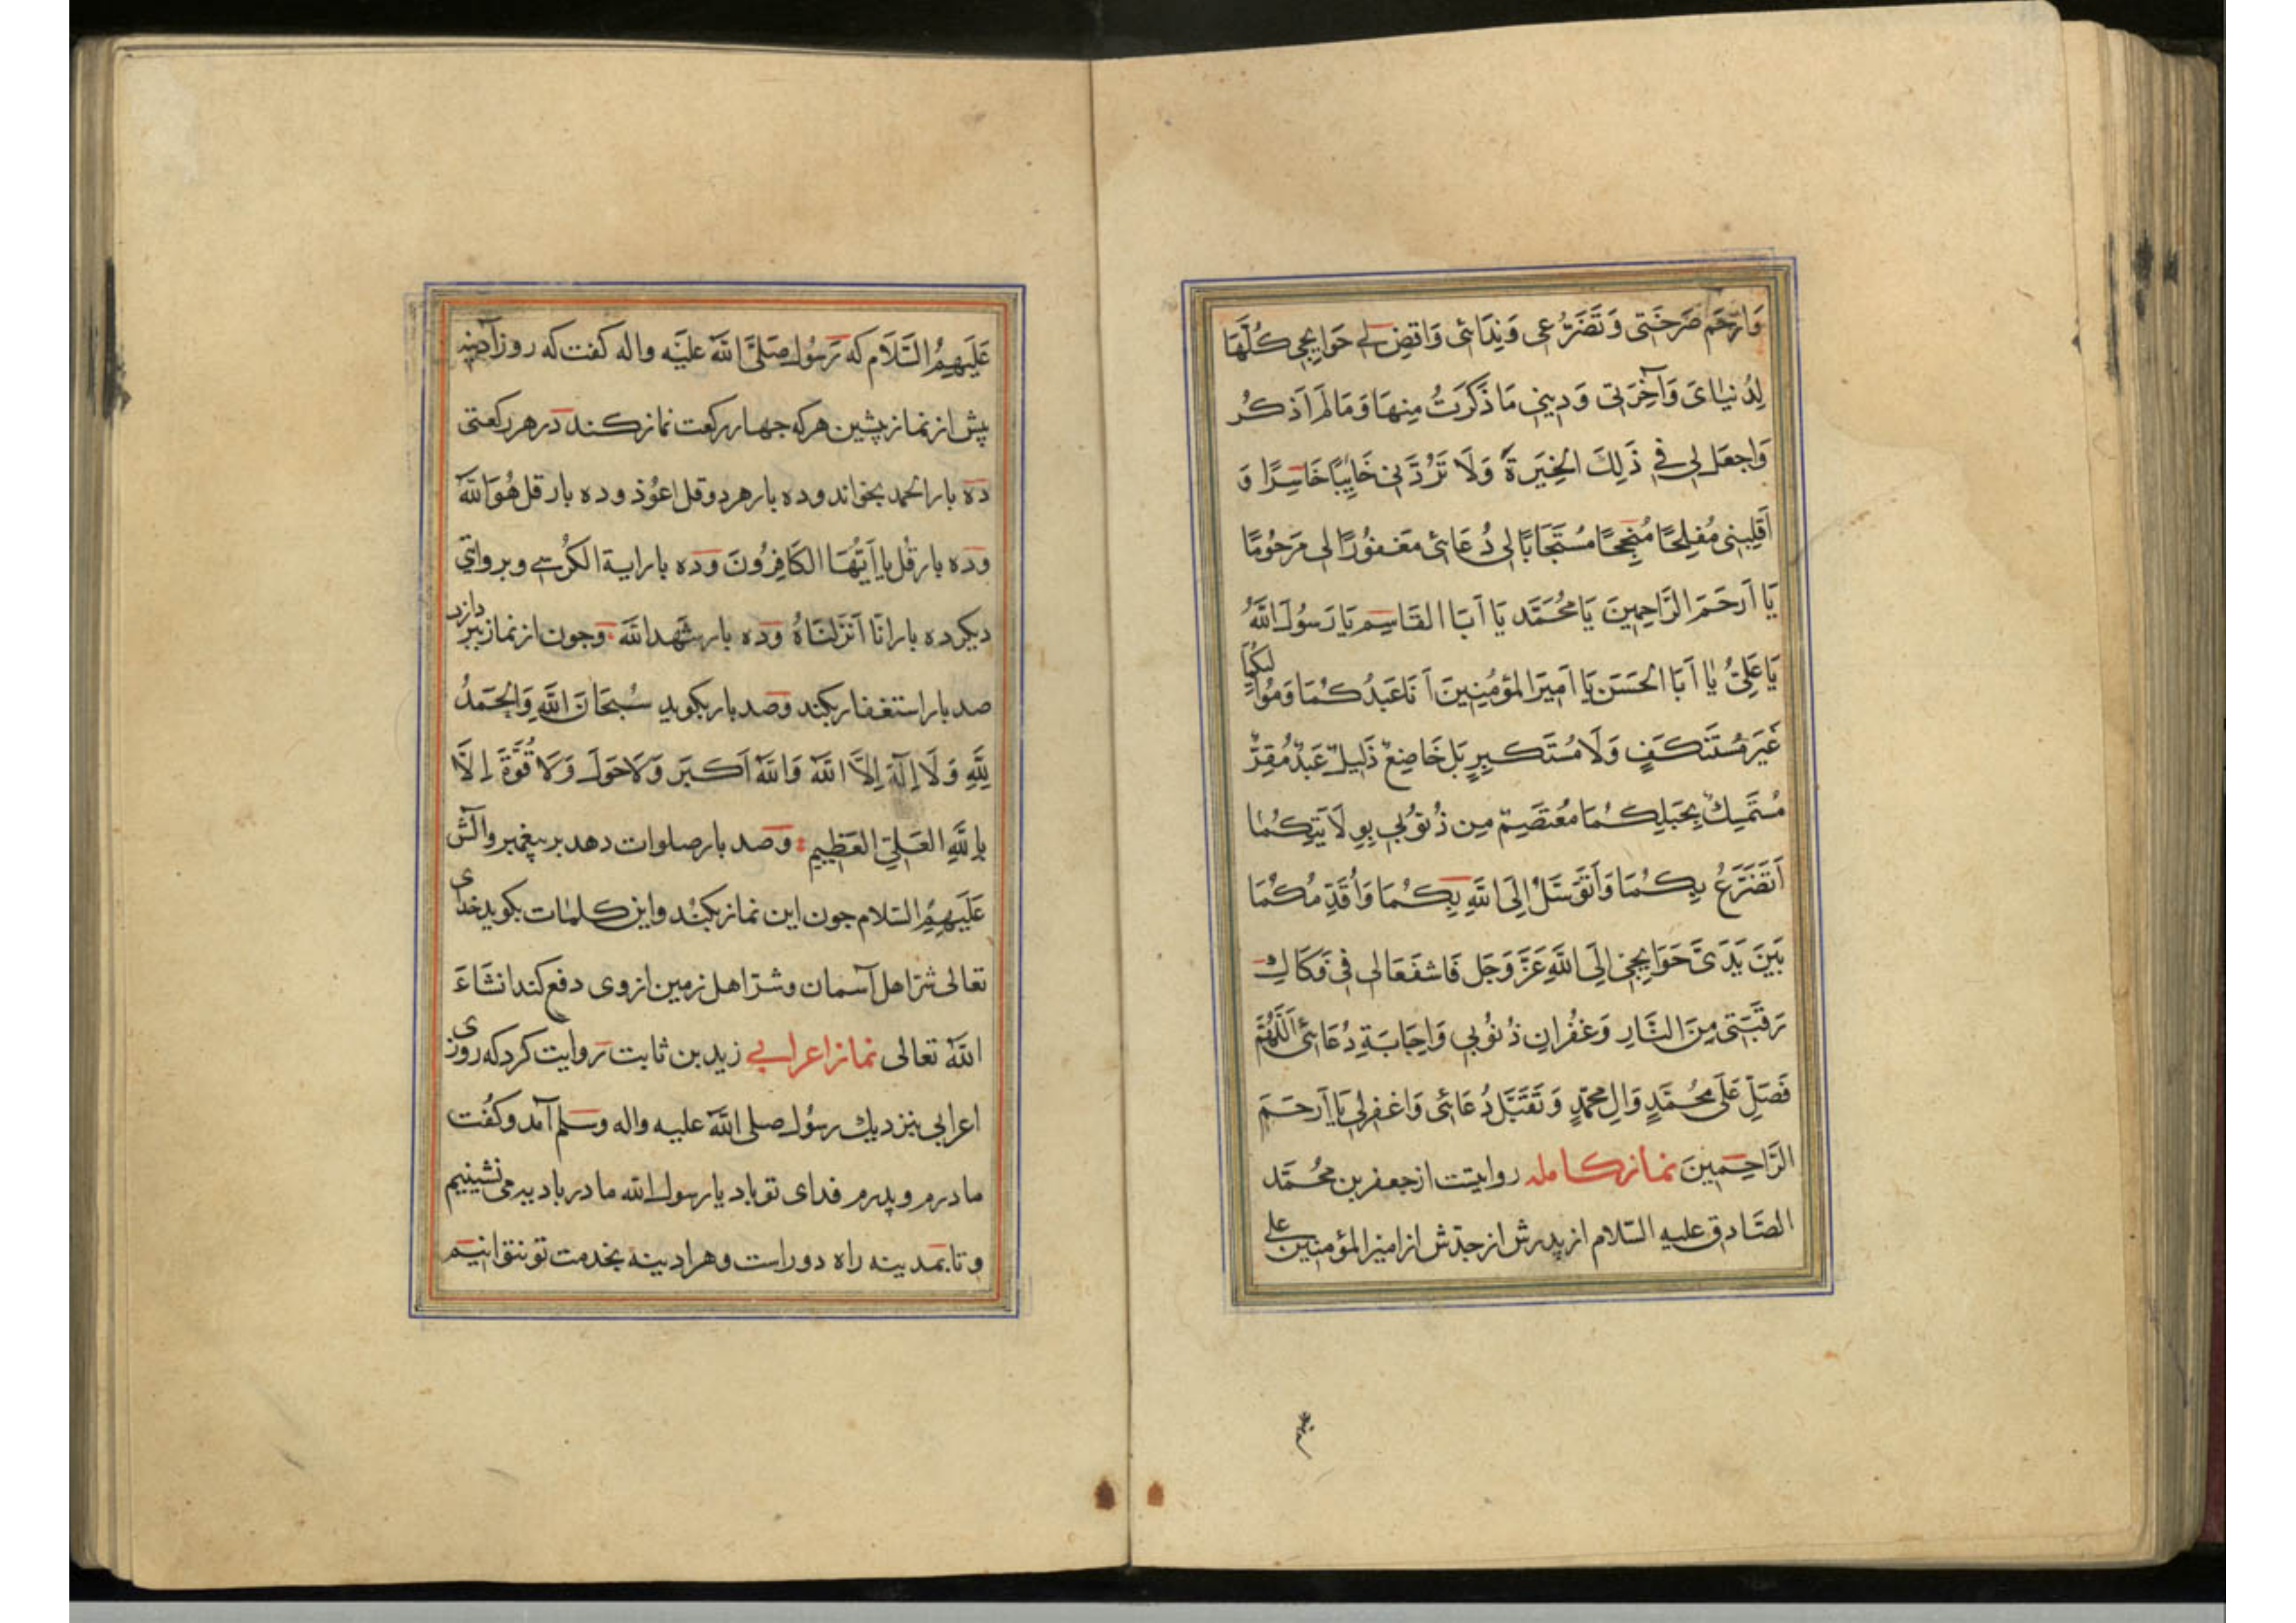 وَارْحَم صَرخَتي وَ تَضَرُّعي وَنِدَائي وَاقضِ لي حَوَايِجي كُلَّهَا
لِدُنيَايَ وَآخِرَتي وَديني مَا ذَكَرَتُ مِنهَا وَمَا لَم اَذكُر
وَاجعَل لي في ذَلِكَ الخِيَرَةَ وَلَا تَرُدَّني خَايِبًا خَاسِرًا وَ
اَقلِبني مُفلِحًا مُنجِحًا مُستَجَابًا لي دُعَائي مَغفُورًا لي مَرحُومًا
يَا اَرحَمَ الرَّاحِمِينَ يَا مُحَمَّد يَا اَبَا القَاسِم يَا رَسُولَ اللهِ
يَا عَلِيُّ يَا اَبَا الحَسَن يَا اَمِيرَ المؤمِنِينَ اَنَا عَبدُكُمَا وَمَوليكُمَا
غَيرَ مُستَنكَفٍ وَلَا مُستَكبِرٍ بَل خَاضِعٌ ذَلِيلٌ عَبدٌ مُقِرٌّ
مُتَمَسِكٌ بِحَبلِكُمَا مُعتَصِمٌ مِن ذُنُوبي بِوِلَايَتِكُمَا
اَتَضَرَّعُ بِكُمَا وَاَتَوَسَّلُ اِلَى اللهِ بِكُمَا وَاُقَدِّمُكُمَا
بَينَ يَدَى حَوَايِجي اِلَى اللهِ عَزَّ وَجَل فَاشفَعَا لي في فَكَاكِ
رَقَبَتي مِنَ النَّارِ وَغُفرَانِ ذُنُوبي وَاِجَابَةِ دُعَائي اَللَّهُمَّ
فَصَلِّ عَلَى مُحَمَّدٍ وَالِ مُحَمَّدٍ وَتَقَبَّل دُعَائي وَاغفِر لي يَا اَرحَمَ
الرَّاحِمِينَ نماز كامله روايتست از جعفر بن محُمَّد
الصَّادق عليه السّلام از پدرش از جدّش از امير المؤمنين على
عَلَيهِمُ السَّلَام كه رَسُول صَلىَّ اللهُ عليَه واله كفت كه روز آدينه
پيش از نماز پيشين هر كه جهار ركعت نماز كند در هر ركعتى
ده بار الحمد بخواند وده بار هر دو قل اعوُذ وده بار قل هُوَ اللهُ
وده بار قُل يَا اَيُّهَا الكَافِرُونَ وده بار اية الكُرسي وبروايتي
ديكر ده بار انّا اَنزَلنَاهُ وده بار شَهِدَ الله وجون از نماز بپردازد
صد بار استغفار بكند وصد بار بكويد سُبحَانَ اللهِ وَالحَمدُ
لِلَّهِ وَلَا اِلَهَ اِلاَّ اللهُ وَاللهُ اَكبَر وَلَا حَولَ وَلَا قُوَّةَ اِلَّا
بِاللهِ العَلِيّ العَظِيم وصد بار صلوات دهد بر پيغمبر وآلش
عَلَيهِمُ السّلام جون اين نماز بكُنَد واين كلمات بكويد خداى
تعالى شرّ اهل آسمان وشرّ اهل زمين از وى دفع كند انشَاءَ
اللهُ تعالى نماز اعرابي زيد بن ثابت روايت كرد كه روزى
اعرابي بنزديك رسُول صلى اللهُ عليه واله وسلم آمد وكفُت
مادرم وپدرم فداى تو باد يا رسول الله ما در باديه مى نشينيم
وتا بمدينه راه دور است وهر ادينه بخدمت تو نتوانيم